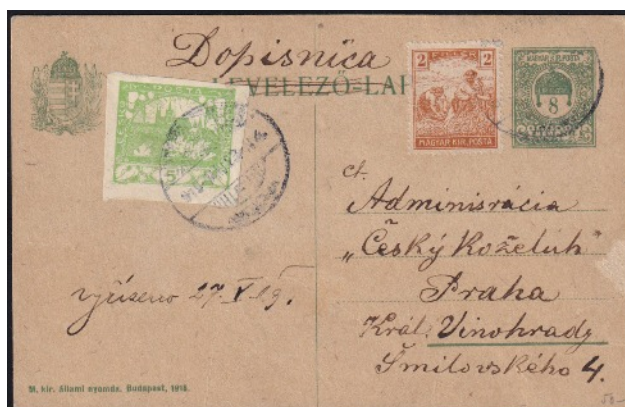 Dopisnica
LEVELEZŐ-LAP
POSTA
2 FILLÉR 2
MAGYAR KIR. POSTA
MAGYAR KIR. POSTA
8
ct.
Adminisrácia
„Český Koželuh“
Praha
Král. Vinohrady
Šmilovského 4.
vyřízeno 27. V. 19.
M. kir. állami nyomda. Budapest, 1918.
50-